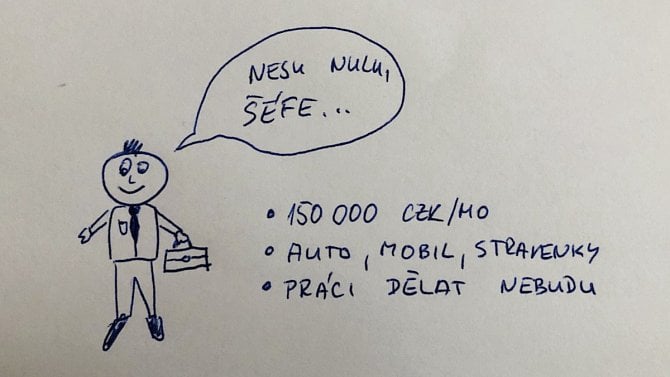 NESU NULU,
ŠÉFE...
• 150 000 CZK/MO
• AUTO, MOBIL, STRAVENKY
• PRÁCI DĚLAT NEBUDU